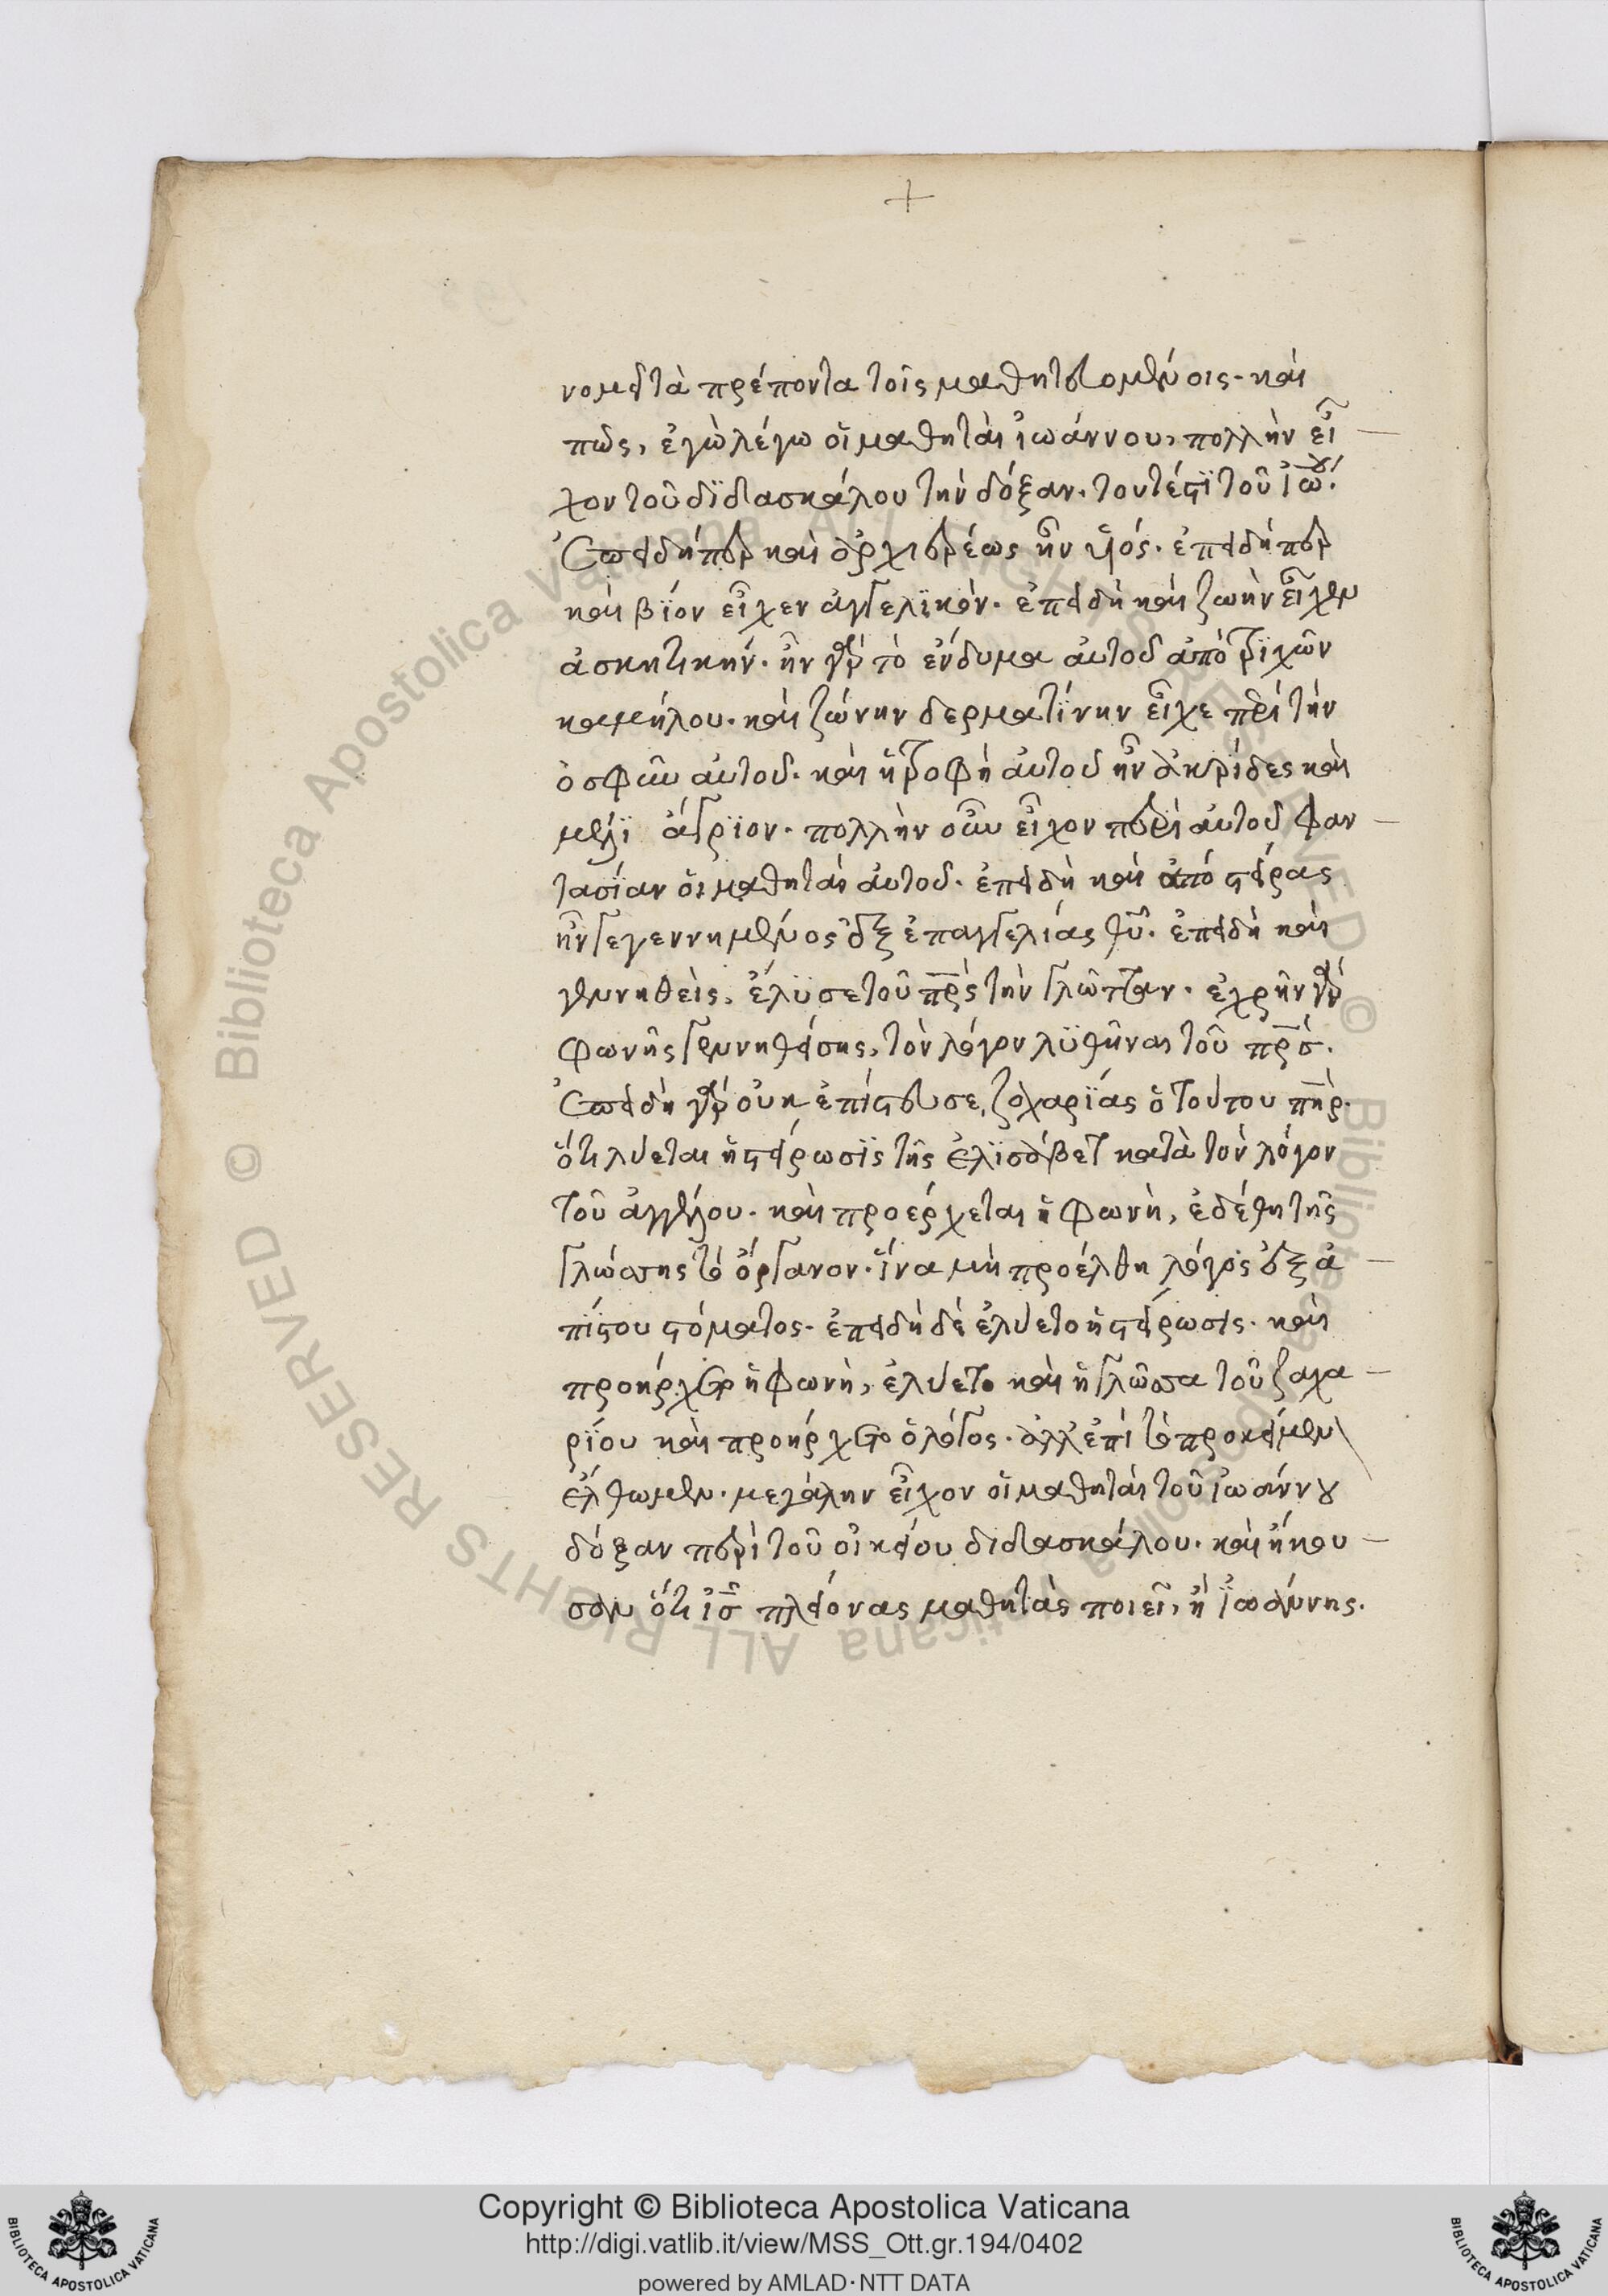 νομεῖ τὰ πρέποντα τοῖς μαθητευομένοις. καὶ
πῶς, ἐγὼ λέγω οἱ μαθηταὶ ἰωάννου, πολλὴν εἶ
χον τοῦ διδασκάλου τὴν δόξαν. τουτέστι τοῦ ἰω̅ου.
Ἐπειδήπερ καὶ ἀρχιερέως ἦν υἱός. ἐπειδήπερ
καὶ βίον εἶχεν ἀγγελϊκόν. ἐπειδὴ καὶ ζωὴν εἶχεν
ἀσκητικήν. ἦν γὰρ τὸ ἐνδυμα αὐτοῦ ἀπὸ τριχῶν
καμήλου. καὶ ζώνην δερματίνην εἶχε περὶ τὴν
ὀσφῦν αὐτοῦ. καὶ ἡ τροφὴ αὐτοῦ ἦν ἀκρίδες καὶ
μέλϊ ἄγρϊον. πολλὴν οὖν εἶχον περὶ αὐτοῦ φαν
τασΐαν οἱ μαθηταὶ αὐτοῦ. ἐπειδὴ καὶ ἀπὸ στείρας
ἦν γεγεννημένος ἐξ ἐπαγγελίας θυ̅. ἐπειδὴ καὶ
γεννηθεὶς, ἔλϋσε τοῦ πρ̅ς τὴν γλῶτταν. ἐχρῆν γὰρ
φωνῆς γεννηθείσης, τὸν λόγον λϋθῆναι τοῦ πρ̅σ.
Ἐπειδὴ γὰρ οὐκ ἐπίστευσε, ζαχαρΐας ὁ τούτου πη̅ρ.
ὅτι λύεται ἡ στείρωσϊς τῆς ἐλϊσάβετ κατὰ τὸν λόγον
τοῦ ἀγγέλου. καὶ προέρχεται ἡ φωνὴ, ἐδέθη τῆς
γλώσσης τὸ ὄργανον. ἵνα μὴ προέλθη λόγος ἐξ ἀ
πΐστου στόματος. ἐπειδὴ δὲ ἐλύετο ἡ στείρωσις. καὶ
προήρχετο ἡ φωνὴ, ἐλύετο καὶ ἡ γλῶσσα τοῦ ζαχα
ρΐου καὶ προήρχετο ὁ λόγος. ἀλλ ἐπὶ τὸ προκείμενον
ἔλθωμεν. μεγάλην εἶχον οἱ μαθηταὶ τοῦ ἰωάννου
δόξαν περὶ τοῦ οἰκείου διδασκάλου. καὶ ἤκου
σαν ὅτι ἰσ̅ πλείονας μαθητὰς ποιεῖ, ἢ ἰωάννης.
Copyright © Biblioteca Apostolica Vaticana
http://digi.vatlib.it/view/MSS_Ott.gr.194/0402
powered by AMLAD·NTT DATA